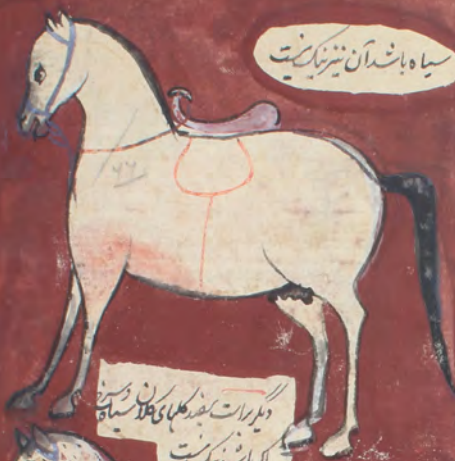 سیاه باشد آن نیز نیک نیست
دیگر برات سفید گلهای کلان سیاه و سرخ
نیک نیست